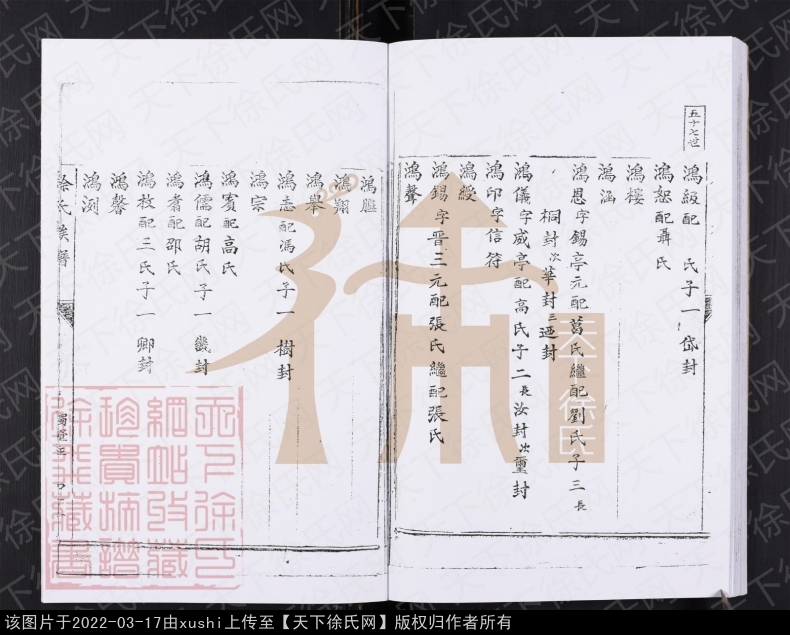 五十七世
鴻級配 氏子一岱封
鴻恕配聶氏
鴻樓
鴻涵
鴻恩字錫亭元配葛氏繼配劉氏子三長
桐封次華封三迺封
鴻儀字威亭配高氏子二長汝封次璽封
鴻印字信符
鴻綬
鴻錫字晋三元配張氏繼配張氏
鴻聲
鴻
鴻翔
鴻舉
鴻志配馮氏子一樹封
鴻宗
鴻賓配高氏
鴻儒配胡氏子一畿封
鴻者配邵氏
鴻枚配三氏子一卿封
鴻馨
鴻測
徐氏族譜
天下徐氏
天下徐氏网
该图片于2022-03-17由xushi上传至【天下徐氏网】版权归作者所有